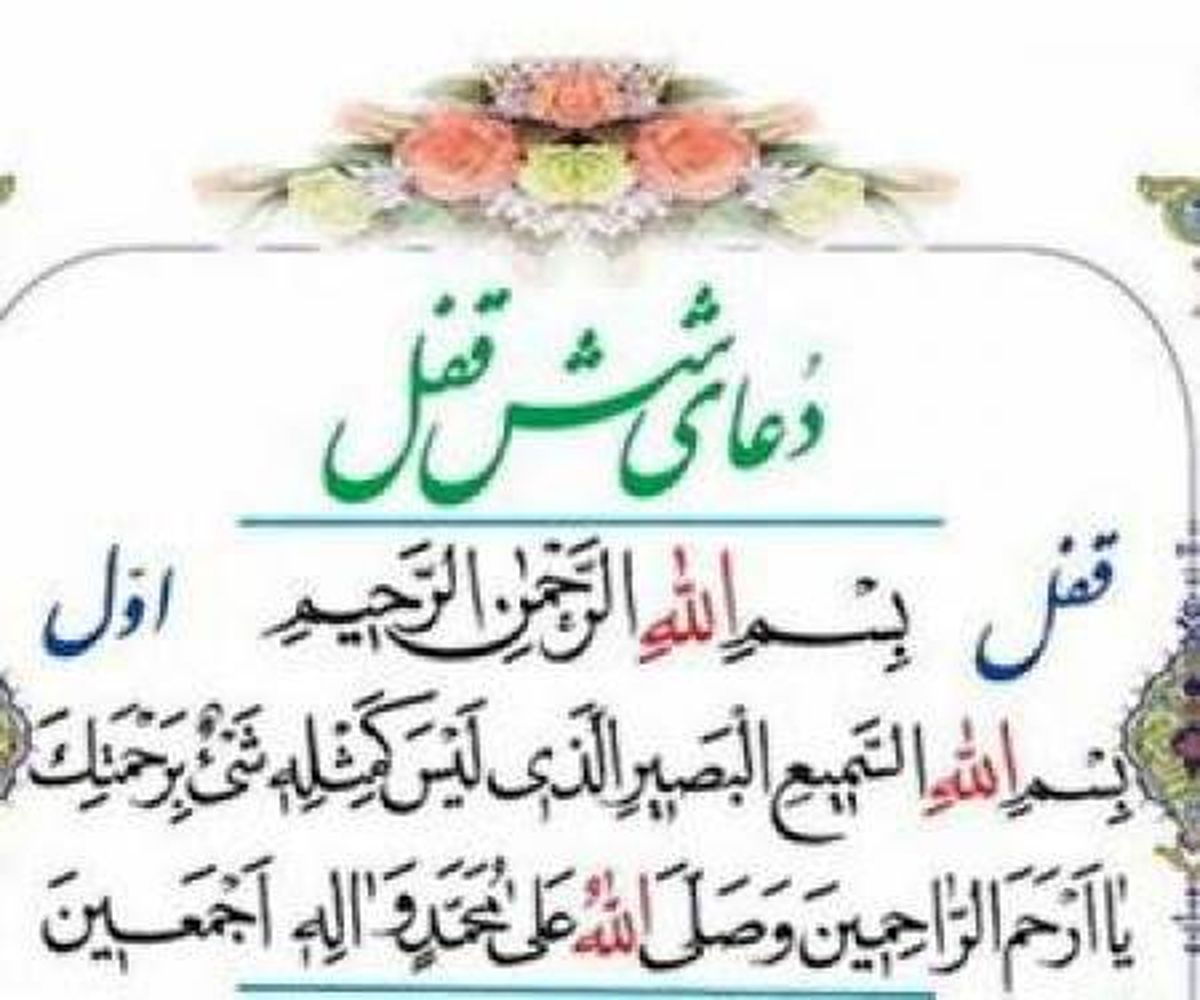 دُعای شش قفل
قفل بِسْمِ اللهِ الرَّحْمٰنِ الرَّحِیمِ اوّل
بِسْمِ اللهِ السَّمِیعِ الْبَصِیرِ الَّذِی لَیْسَ کَمِثْلِهِ شَیْءٌ بِرَحْمَتِکَ
یٰا اَرْحَمَ الرّٰاحِمِینَ وَ صَلَّی اللهُ عَلیٰ مُحَمَّدٍ وَ اٰلِهِ اَجْمَعِینَ